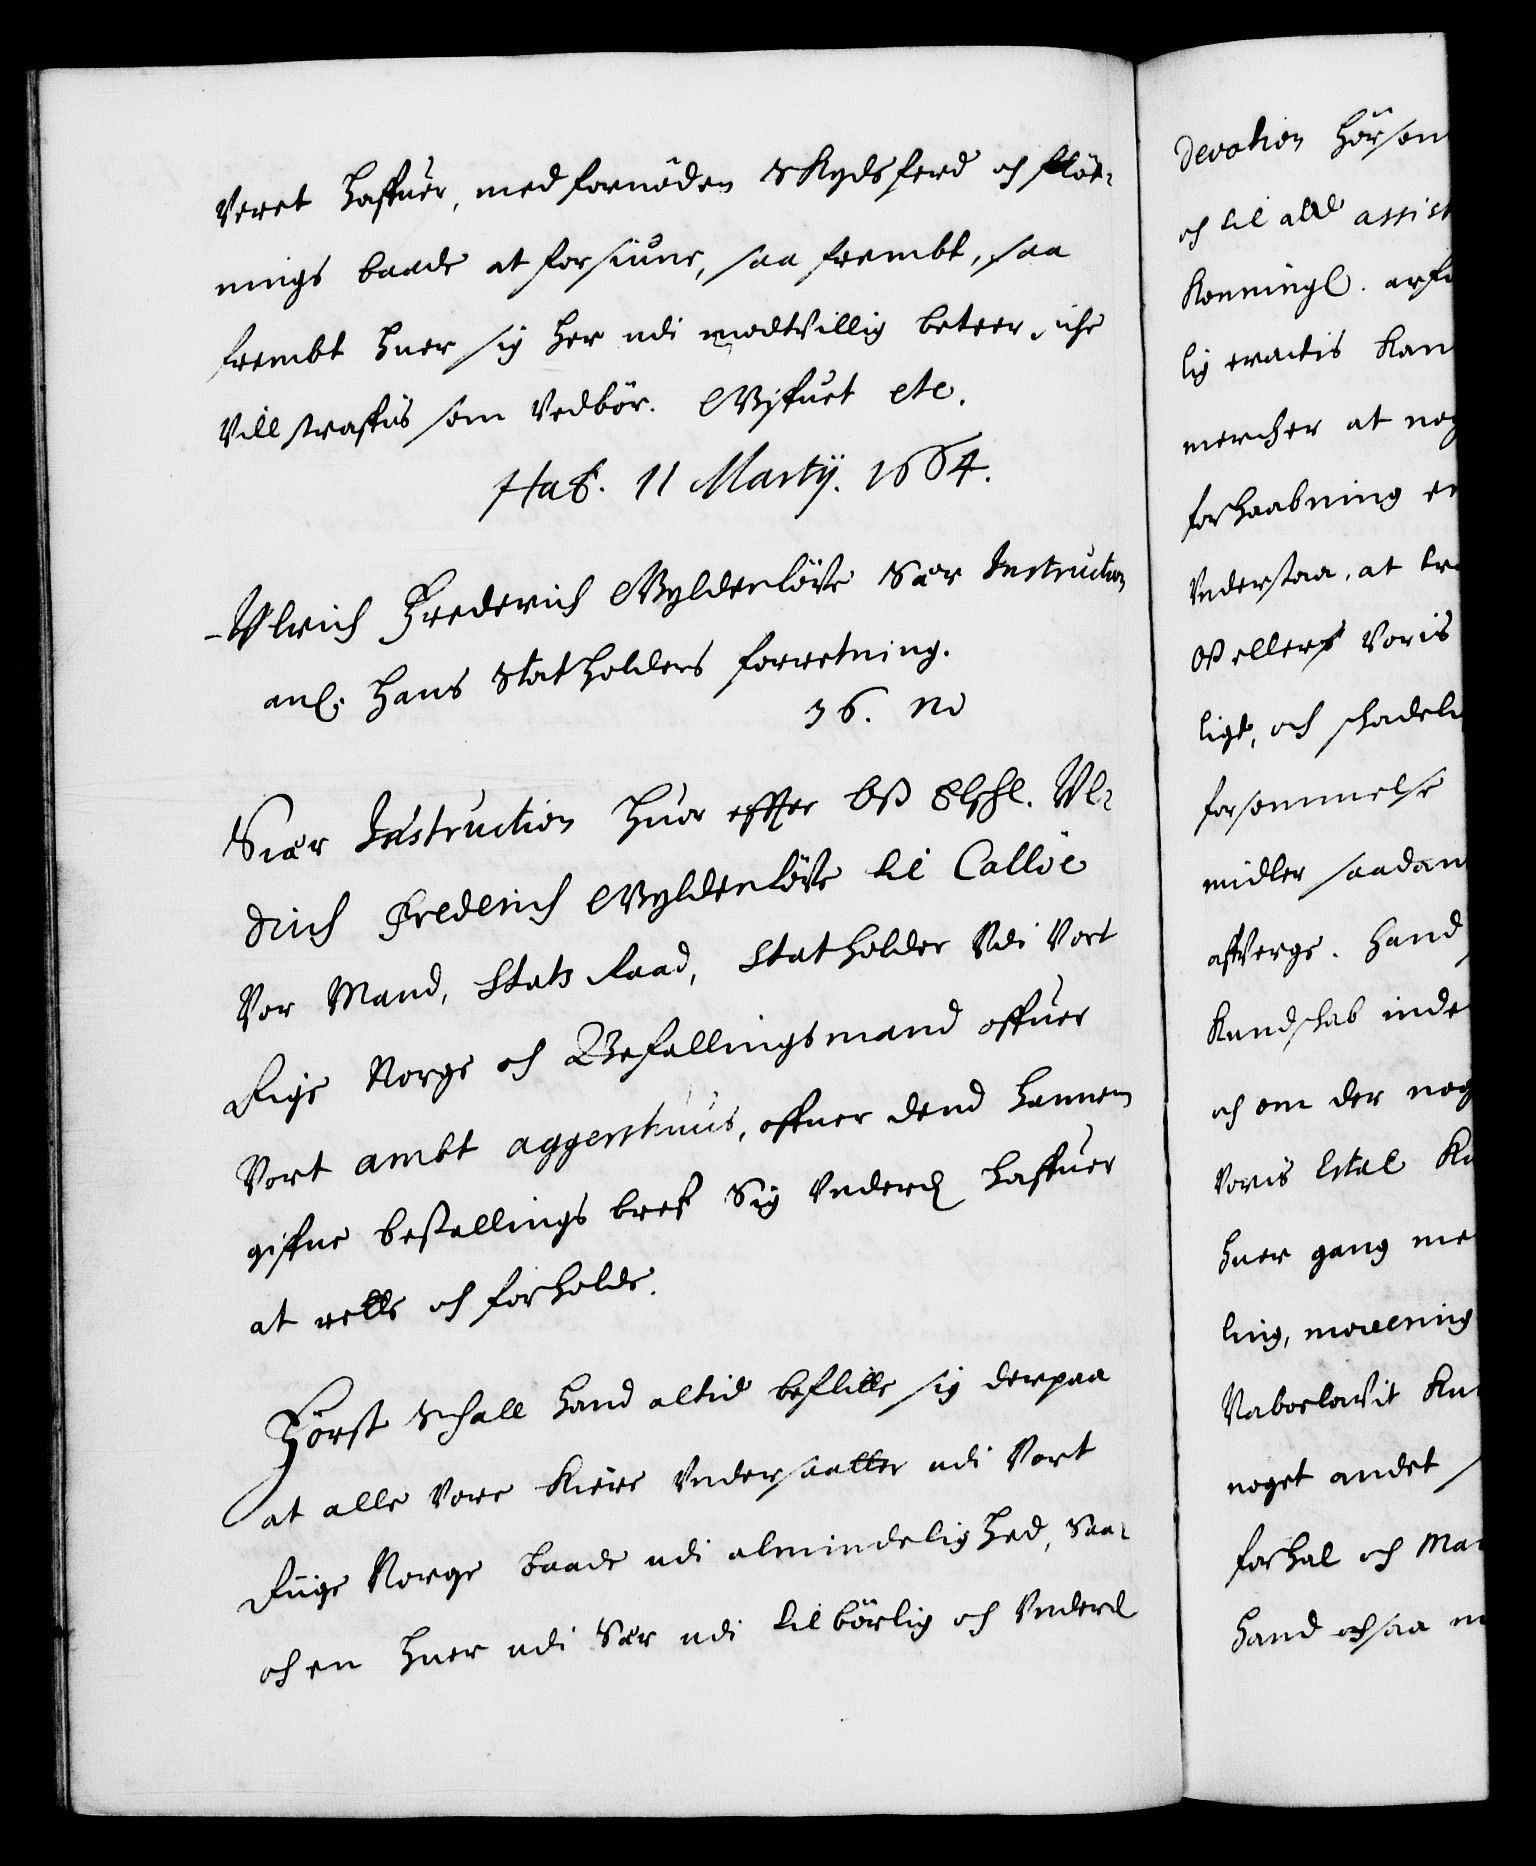 veret haffuer, med fornöden Skydsferd och flöt-
nings baade at forsiune, saa frembt, saa
frembt huer sig her udi modtvillig beteer, iche
vill straffis som vedbör. Giffuet etc.
Haf. 11 Martij. 1664.
Ulrich Frederich Gyldenlöve Sær Instruction
anl. hans Statholders forretning.
36. No
Sær Instruction huor effter Oß Elschl. Ul-
drich Frederich Gyldenlöve til Callöe
Vor Mand, Stats Raad, Statholder Udi Vort
Rige Norge och Befallingsmand offuer
Vort ambt aggershuus, offuer dend hannem
giffne bestallings breff Sig underd haffuer
at rette och forholde.
Först Schall hand altid beflitte sig derpaa
at alle vore kiere Undersaatter udi Vort
Riige Norge baade udi almindelighed, Saa-
och en huer udi Sær udi tilbörlig och Underd
devotion hörsom
och til all assist
Konningl. arf
lig eractis kan
mercher at nog
forhaabning er
Understaa, at tr
Oß ellers Voris
ligt, och schadeli
forsommelse
midler saadan
affverge. Hand
Kundschab inde
och om der nog
Voris Etat Ku
huer gang me
ling, moveering
Vaboelavit Ku
noget andet
forhal och Ma
hand och saa m